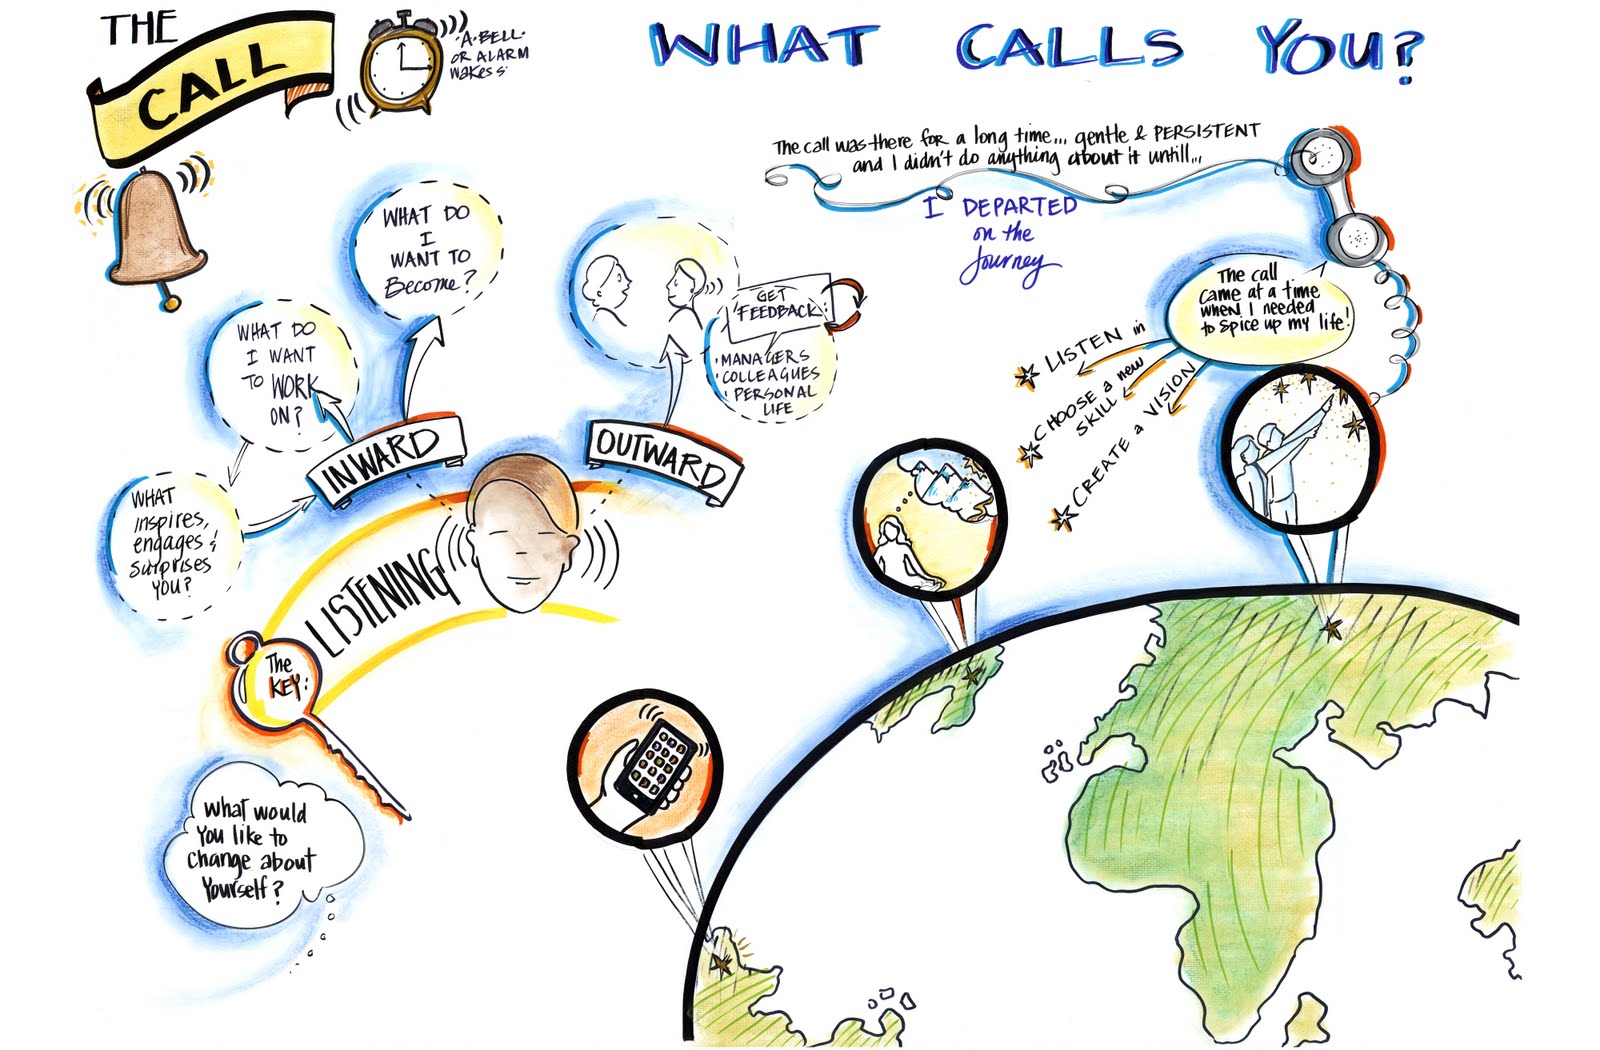 THE
CALL
·A·BELL·
OR ALARM
WAKES S:
WHAT CALLS YOU?
The call was there for a long time... gentle & PERSISTENT
and I didn't do anything about it untill...
I DEPARTED
on the
Journey
The call
came at a time
when I needed
to spice up my life!
LISTEN in
CHOOSE a new
SKILL
CREATE a VISION
WHAT DO
I
WANT TO
Become?
WHAT DO
I WANT
TO WORK
ON?
WHAT
inspires,
engages &
surprises
YOU?
INWARD
OUTWARD
GET
FEEDBACK
·MANAGERS
·COLLEAGUES
·PERSONAL
LIFE
LISTENING
The
KEY:
What would
You like to
change about
Yourself?